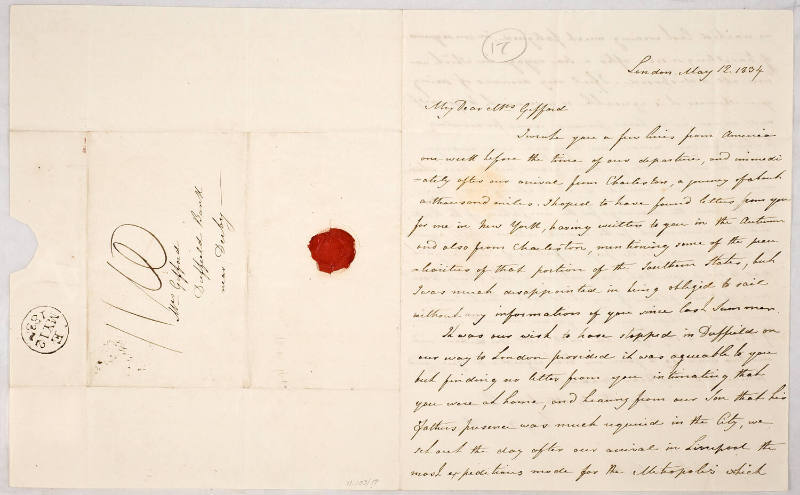 17
London May 12. 1834
My Dear Mrs Gifford
I wrote you a few lines from America
one week before the time of our departure, and immedi
-ately after our arrival from Charleston, a journey of about
a thousand miles. I hoped to have found letters from you
for me in New York, having written to you in the Autumn
and also from Charleston, mentioning some of the pecu
liarities of that portion of the Southern States, but
I was much disappointed in being obliged to sail
without any information of you since last Summer.
It was our wish to have stopped in Duffield on
our way to London provided it was agreeable to you
but finding no letter from you intimating that
you were at home, and hearing from our Son that his
fathers presence was much required in the City, we
set out the day after our arrival in Liverpool the
most expeditious mode for the Metropolis which
Mrs Gifford
Duffield Bank
near Derby
E
MY 12